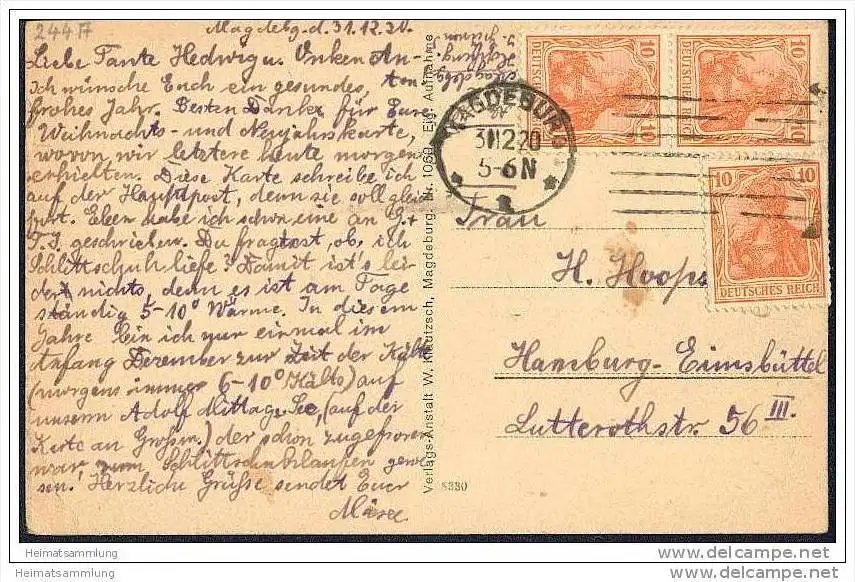 244 A
Magdebg. d. 31.12.20.
Liebe Tante Hedwig u. Onken An-
ton
Ich wünsche Euch ein gesundes,
frohes Jahr. Besten Dank für Eure
Weihnachts- und Neujahrskarte,
wovon wir letztere heute morgen
erhielten. Diese Karte schreibe ich
auf der Hauptpost, denn sie soll gleich
fort. Eben habe ich schon eine an G. +
T. J. geschrieben. Du fragtest, ob ich
Schlittschuh liefe? Damit ist's lei-
der nichts, denn es ist am Tage
ständig 5-10° Wärme. In diesem
Jahre bin ich nur einmal im
Anfang Dezember zur Zeit der Kälte
(morgens immer 6-10° Kälte) auf
unserm Adolf Mittag-See, (auf der
Karte an Großm.) der schon zugefroren
war zum Schlittschuhlaufen gewe-
sen! Herzliche Grüße sendet Euer
Verlags-Anstalt W. Klautzsch, Magdeburg. Nr. 1060. Eig. Aufnahme
5330
MAGDEBURG
31 12 20
5-6 N
10 10
DEUTSCHES REICH
10 10
DEUTSCHES REICH
10 10
DEUTSCHES REICH
Frau
H. Hoops
Hamburg-Eimsbüttel
Lutterothstr. 56 III.
Heimatsammlung
Heimatsammlung
www.delcampe.net
www.delcampe.net